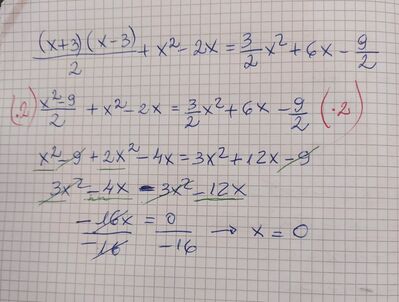 (x+3)(x-3)/2 + x² - 2x = 3/2 x² + 6x - 9/2
(·2) x²-9/2 + x² - 2x = 3/2 x² + 6x - 9/2 (·2)
x² - 9 + 2x² - 4x = 3x² + 12x - 9
3x² - 4x - 3x² - 12x
-16x/-16 = 0/-16 → x = 0